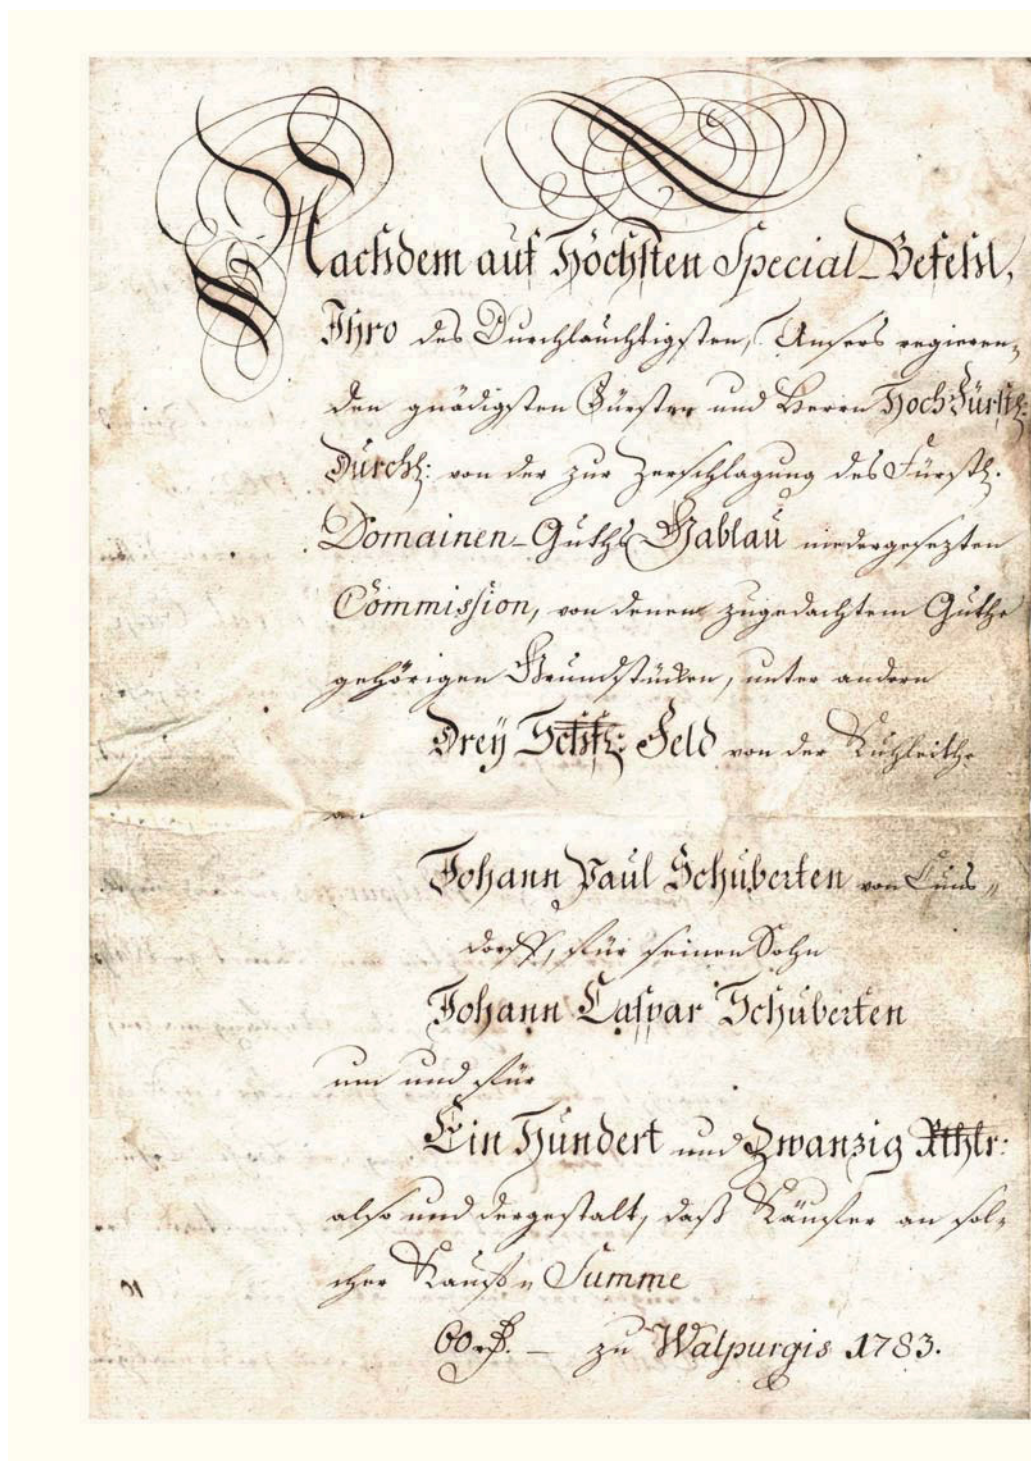 Nachdem auf Höchsten Special-Befehl,
Ihro des Durchlauchtigsten, Unsers regieren-
den gnädigsten Fürsten und Herrn Hoch Fürstl.
Durchl: von der zur Zerschlagung des Fürstl.
Domainen-Guths Gablau niedergesezten
Commission, von denen zugedachtem Guthe
gehörigen Grundstücken, unter andern
Drey Schfl: Feld von der Kuhleithe
an
Johann Paul Schuberten von Cuns-
dorff, für seinen Sohn
Johann Caspar Schuberten
um und für
Ein Hundert und Zwanzig Rthlr:
also und dergestalt, daß Käuffer an sol-
cher Kauff-Summe
60 rf. — zu Walpurgis 1783.